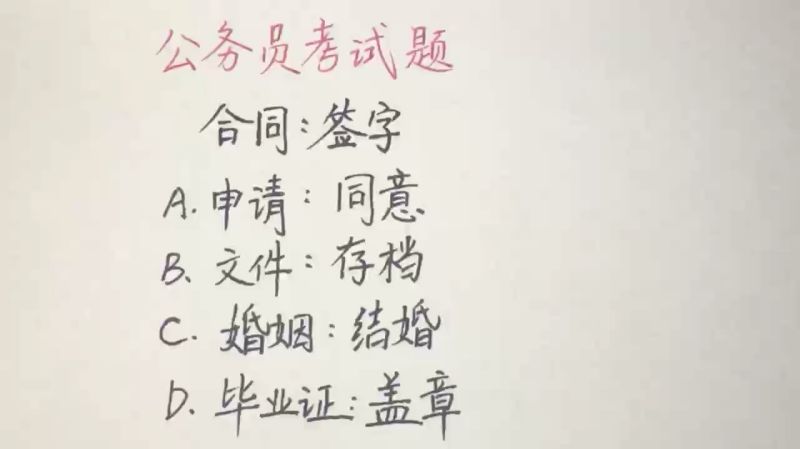 公务员考试题
合同:签字
A. 申请:同意
B. 文件:存档
C. 婚姻:结婚
D. 毕业证:盖章